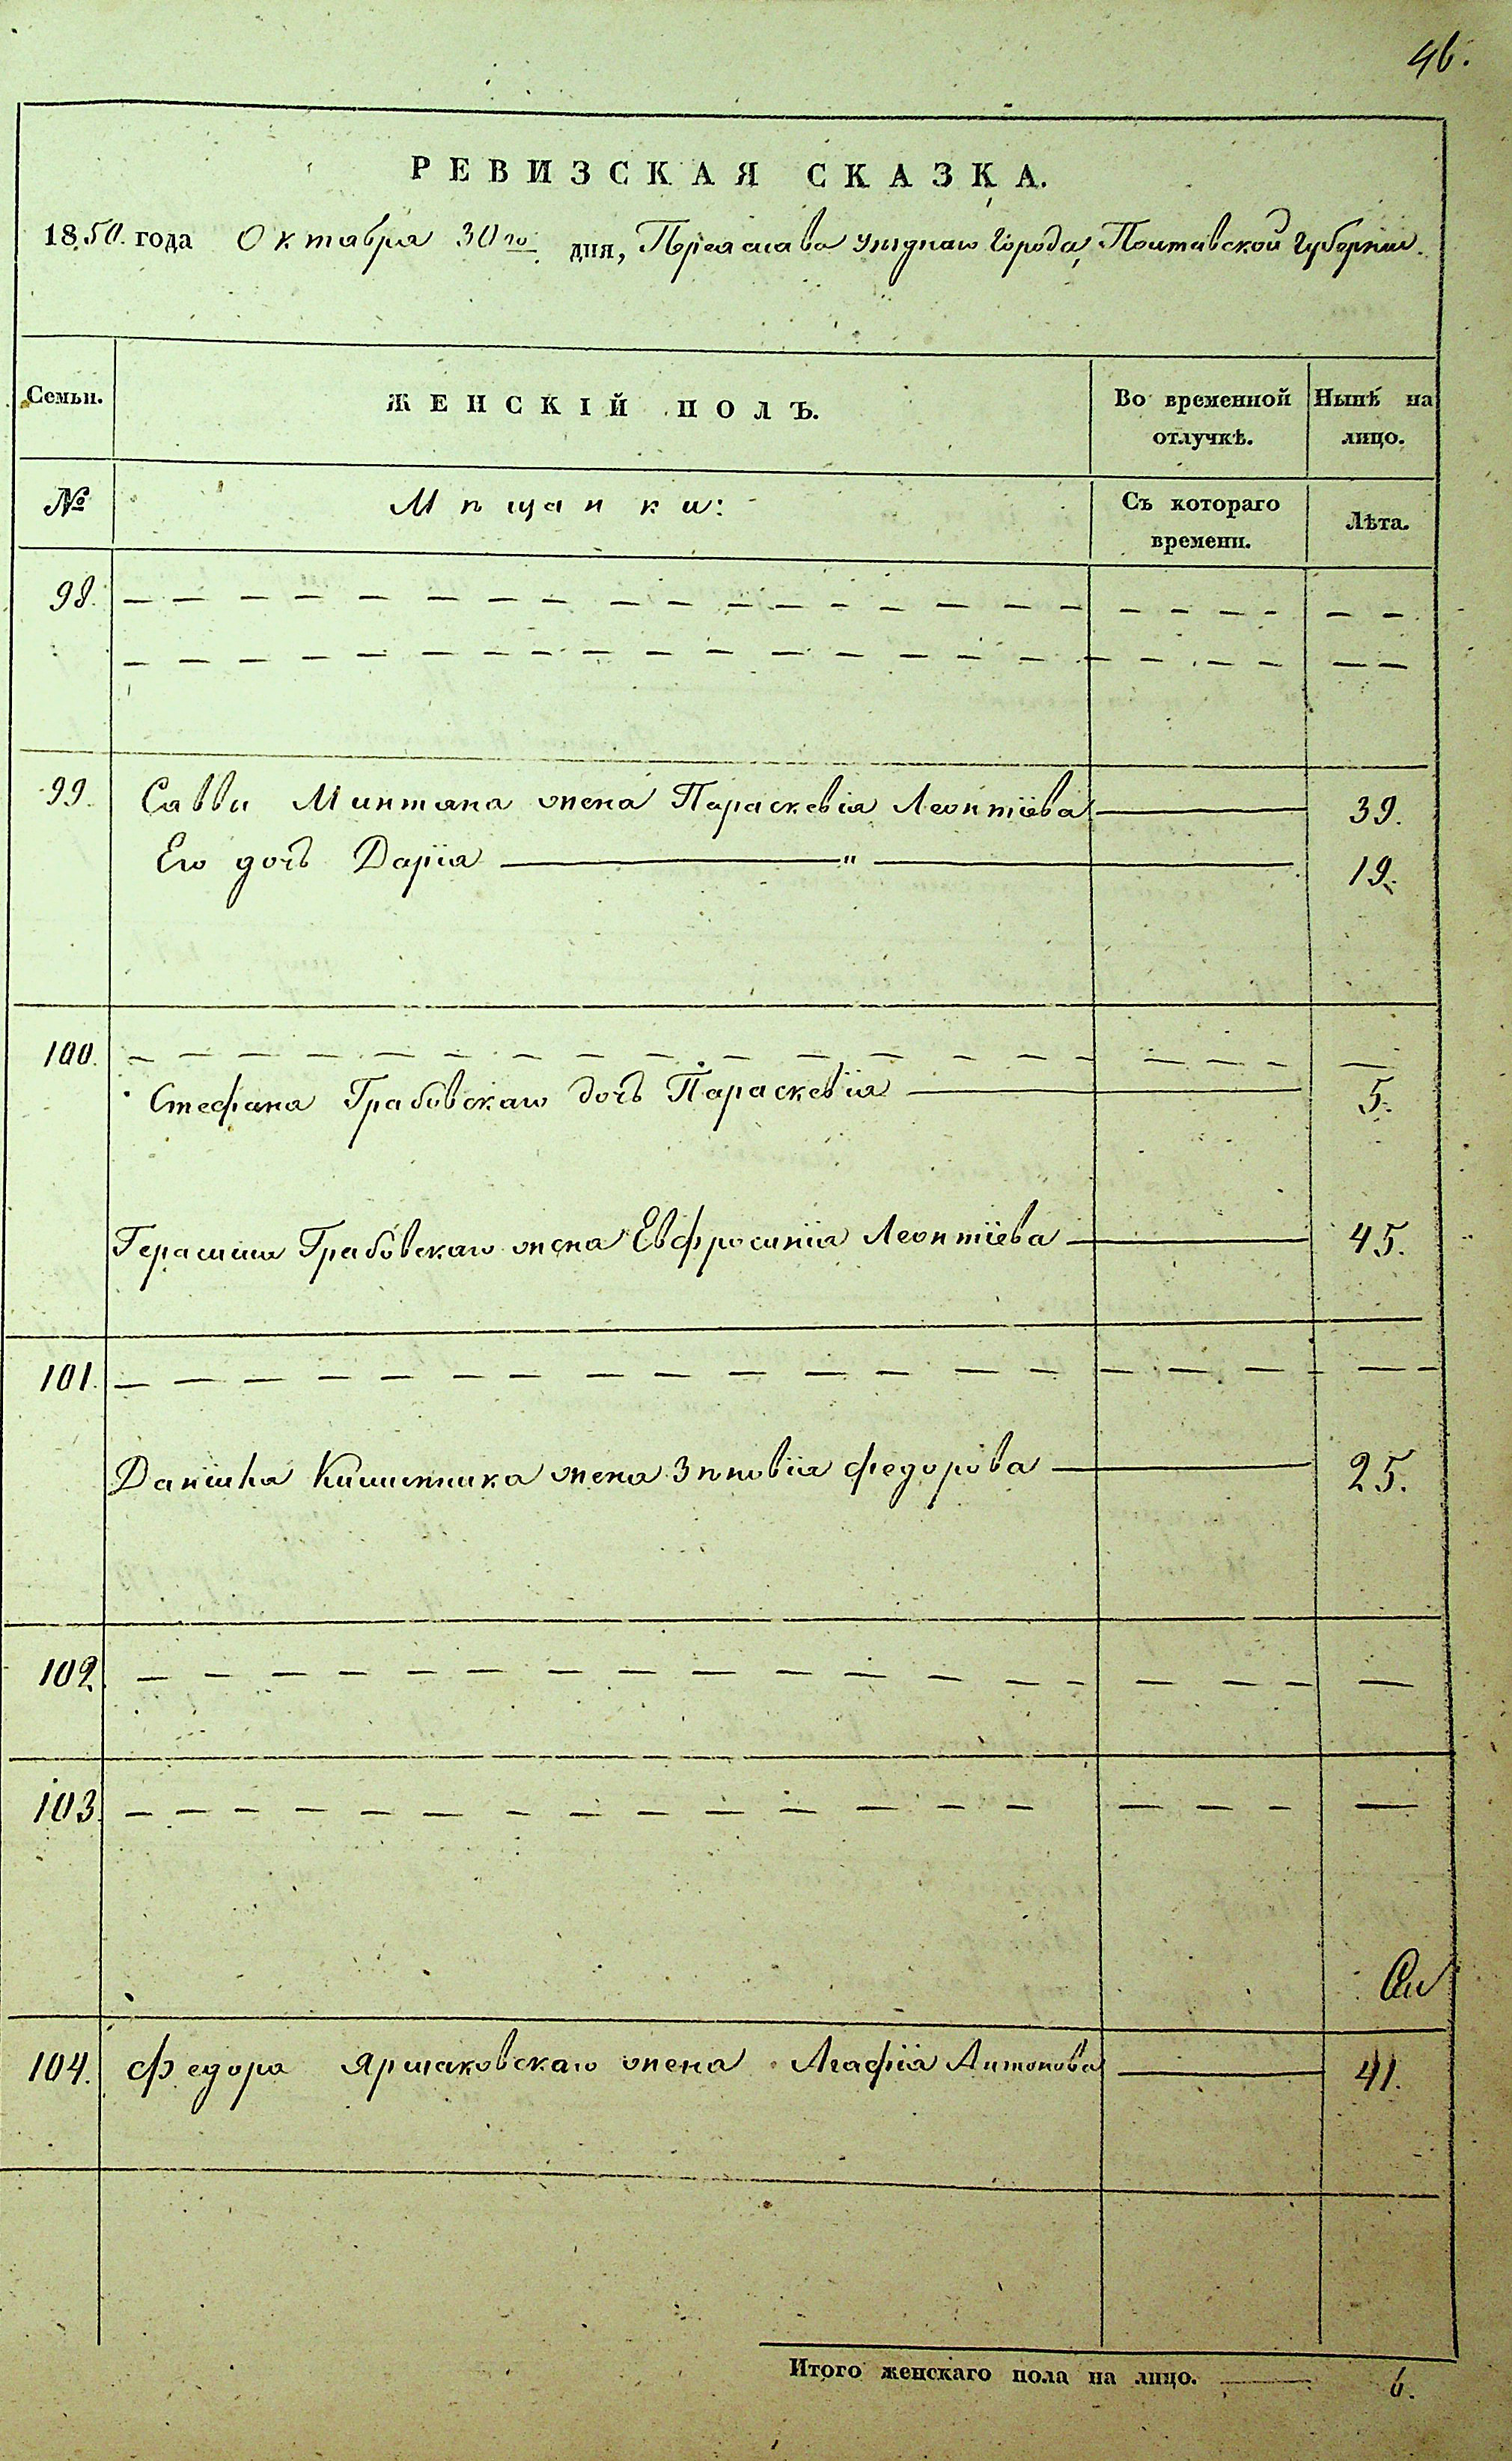 46.
РЕВИЗСКАЯ СКАЗКА.
1850. года Октября 30го дня, Переяслава уѣзднаго города, Полтавской губернии.
Семьи. ЖЕНСКІЙ ПОЛЪ. Во временной отлучкѣ. Нынѣ на лицо.
№ Мѣщанки: Съ котораго времени. Лѣта.
98.
99. Саввы Минтяна жена Параскевія Леонтіева 39.
Его дочь Дарія " 19.
100.
Стефана Грабовскаго дочь Параскевія 5.
Герасима Грабовскаго жена Евфросинія Леонтіева 45.
101.
Даніила жена Зѣновія Федорова 25.
102.
103.
104. Федора Ярмаковскаго жена Агафія Антонова 41.
Итого женскаго пола на лицо. 6.